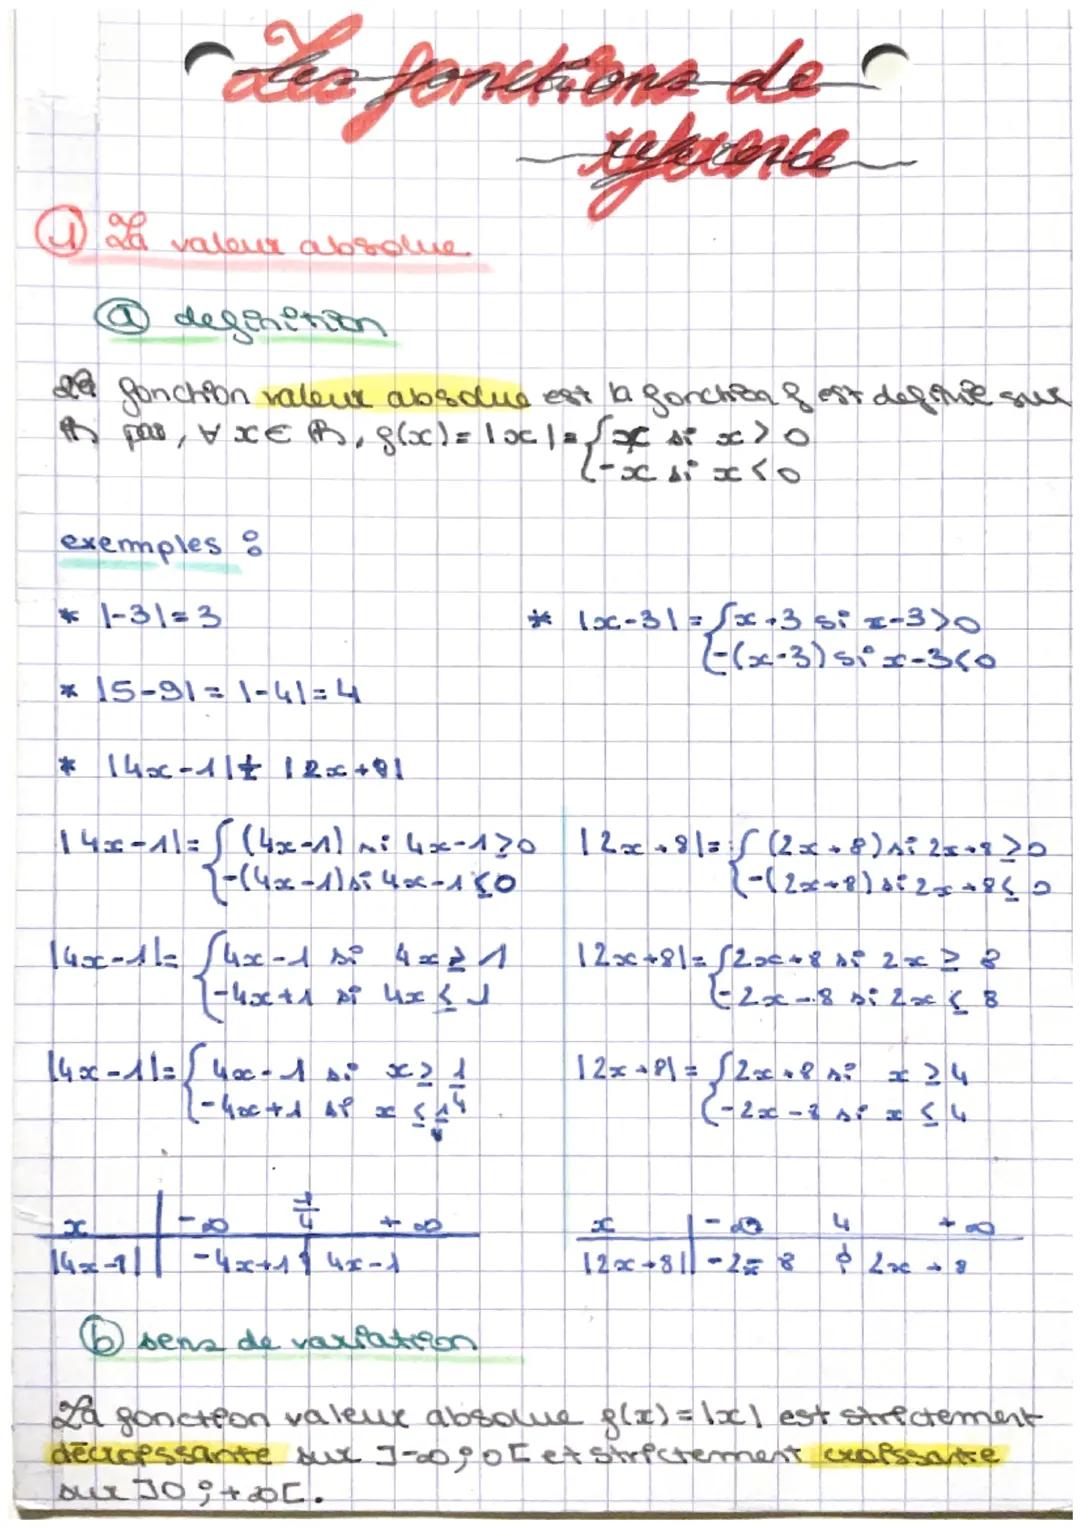 Les fonctions de
reference
① La valeur absolue
ⓐ definition
La fonction valeur absolue est la fonction f est definie sur
ℝ par, ∀ x ∈ ℝ, f(x) = |x| = { x si x > 0
{ -x si x < 0
exemples :
* |-3| = 3
* |x-3| = { x-3 si x-3>0
{ -(x-3) si x-3<0
* |5-9| = |-4| = 4
* |4x-1| + |2x+8|
|4x-1| = { (4x-1) si 4x-1≥0
{ -(4x-1) si 4x-1≤0
|2x+8| = { (2x+8) si 2x+8≥0
{ -(2x+8) si 2x+8≤0
|4x-1| = { 4x-1 si 4x ≥ 1
{ -4x+1 si 4x ≤ 1
|2x+8| = { 2x+8 si 2x ≥ 8
{ -2x-8 si 2x ≤ 8
|4x-1| = { 4x-1 si x ≥ 1/4
{ -4x+1 si x ≤ 1/4
|2x+8| = { 2x+8 si x ≥ 4
{ -2x-8 si x ≤ 4
x | -∞ 1/4 +∞
|4x-1| | -4x+1 | 4x-1
x | -∞ 4 +∞
|2x+8| | -2x 8 | 2x+8
ⓑ sens de variation
La fonction valeur absolue f(x) = |x| est strictement
décroissante sur ]-∞; 0[ et strictement croissante
sur ]0; +∞[.